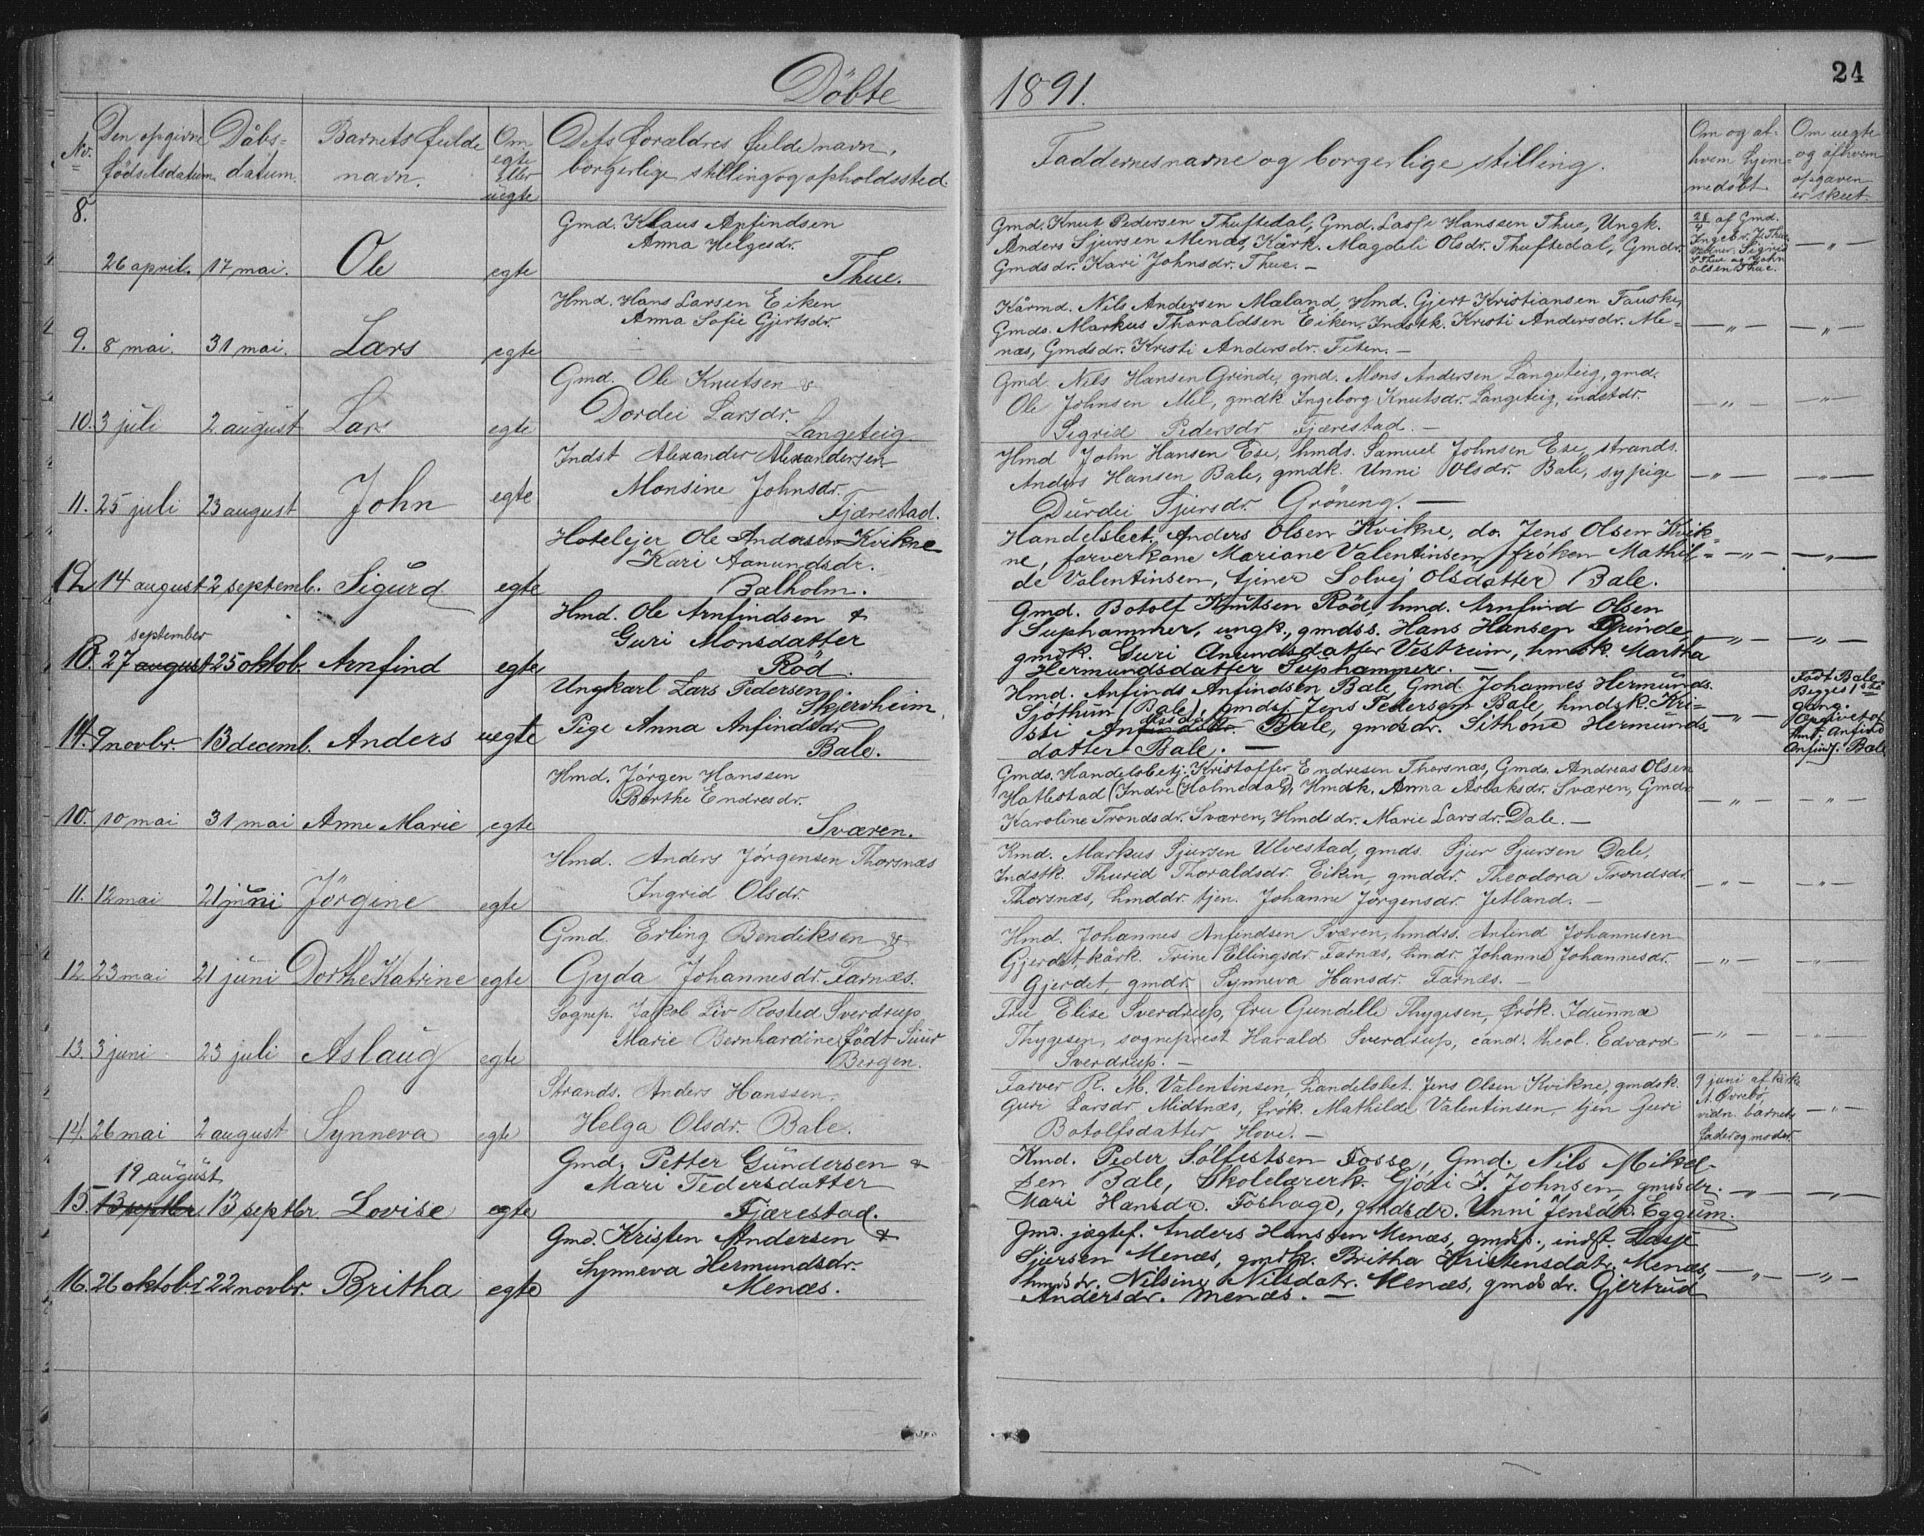 Döbte
1891.
24
No.
Den opgivne
födselsdatum.
Dåbs-
datum.
Barnets fulde
navn.
Om
egte
eller
uegte
Dets foraldres fulde navn,
borgerlige stilling og opholdssted.
Faddernes navne og borgerlige stilling.
Om og af
hvem hjem-
medöbt
Om uegte
og af hvem
opgaven
er skeet
8.
26 april. 17 mai. Ole egte
Gmd. Klaus Anfindsen
Anna Helgesdr.
Thue.
Gmd. Knut Pedersen Thuftedal, Gmd. Lasse Hanssen Thue, Ungk.
Anders Sjursen Menæs, Kårk. Magdeli Olsdr. Thuftedal, Gmdr.
Gmdsdr. Kari Johnsdr. Thue. —
28/4 af Gmd.
Ingebr. J. Thue
Vidner: Sigrid
S. Thue og John
Olsen Thue.
— „ —
9. 8 mai. 31 mai. Lars egte
Hmd. Hans Larsen Eiken
Anna Sofie Gjertsdr.
Kårmd. Nils Andersen Mæland, Hmd. Gjert Kristiansen Fauske,
Gmds. Markus Thoraldsen Eiken, Indstk. Kristi Andersdr. Me-
næs, Gmdsdr. Kristi Andersdr. Feten. —
— „ — — „ —
10. 3 juli 2 august Lars egte
Gmd. Ole Knutsen &
Dordei Larsdr.
Langeteig.
Gmd. Nils Hansen Grinde, gmd. Mons Andersen Langeteig, gmd.
Ole Johnsen Mel, gmdk. Ingeborg Knutsdr. Langeteig, indstdr.
Sigrid Pedersdr Fjærestad. —
— „ — — „ —
11. 25 juli 23 august John egte
Indst Alexander Alexandersen
Monsine Johnsdr.
Fjærestad.
Hmd John Hansen Ese, hmds. Samuel Johnsen Ese, strands.
Anders Hansen Bale, gmdk. Unni Olsdr. Bale, sypige
Durdei Sjursdr. Gröneng. —
— „ — — „ —
12. 14 august 2 septemb. Sigurd egte
Hotelejer Ole Andersen Kvikne
Kari Aamundsdr.
Balholm.
Handelsbet. Anders Olsen Kvikne, do. Jens Olsen Kvik-
ne, farverkone Mariane Valentinsen, fröken Mathil-
de Valentinsen, tjener Solvej Olsdatter Bale.
— „ — — „ —
september
13. 27 august 25 oktob. Arnfind egte
Hmd. Ole Arnfindsen &
Guri Monsdatter
Röd.
Gmd. Botolf Knutsen Röd, hmd. Arnfind Olsen
Suphammer, ungk., gmdss. Hans Hansen Grinde,
gmdk. Guri Anundsdatter Vestrum, hmdk. Martha
Hermundsdatter Suphammer. —
— „ — — „ —
14. 9 novbr. 13 decemb. Anders uegte
Ungkarl Lars Pedersen
Skjervheim.
Pige Anna Anfindsdr
Bale.
Hmd. Anfinds Anfindsen Bale, Gmd. Johannes Hermunds.
Sjöthun (Bale), hmds. Jens Pedersen Bale, hmdsk. Kri-
sti Anfindsdr. Bale, gmdsdr. Sithone Hermunds-
datter Bale. —
— „ —
Födt Bale.
Begges 1ste
gang.
Opgivet af
Hmd. Anfind
Anfinds. Bale
10. 10 mai 31 mai Anne Marie egte
Hmd. Jørgen Hanssen
Berthe Endresdr.
Sværen.
Gmds. Handelsbetj. Kristoffer Endresen Thorsnæs, Gmds. Andreas Olsen
Hatlestad (Indre Holmedal), Hmdk. Anna Aslaksdr. Sværen, Gmdr.
Karoline Trondsdr. Sværen, Hmdsdr. Marie Larsdr. Dale. —
— „ — — „ —
11. 12 mai 21 juni Jörgine egte
Hmd. Anders Jörgensen Thorsnæs
Ingrid Olsdr.
Kmd. Markus Sjursen Ulvestad, gmds. Sjur Sjursen Dale,
Indstk. Thurid Thoraldsdr. Eiken, gmddr. Theodora Trondsdr
Thorsnæs, hmddr. tjen. Johanne Jørgensdr. Jetland. —
— „ — — „ —
12. 23 mai 21 juni Dorthe Katrine egte
Gmd. Erling Bendiksen &
Gyda Johannesdr. Farnæs.
Hmd. Johannes Anfindsen Sværen, hmdss. Anfind Johannesen
Gjerdet, kårk. Trine Ellingsdr Farnæs, hmdr. Johanne Johannesdr.
Gjerdet, gmdr. Synneva Hansdr. Farnæs. —
— „ — — „ —
13. 3 juni 23 juli Aslaug egte
Sognep. Jakob Liv Rosted Sverdrup
Marie Bernhardine, födt Suur
Bergen.
Fru Elise Sverdrup, fru Gundelle Thygesen, frök. Idunna
Thygesen, sogneprest Harald Sverdrup, cand. theol. Edvard
Sverdrup. —
— „ — — „ —
14. 26 mai 2 august Synneva egte
Strands. Anders Hanssen.
Helga Olsdr. Bale.
Farver R. M. Valentinsen, handelsbet. Jens Olsen Kvikne, gmdsk.
Guri Larsdr. Midtnæs, frök. Mathilde Valentinsen, tjen Guri
Botolfsdatter Hove. —
9 juni af kirks.
A. Övrebö,
vidn. barnets
fader og moder.
— „ —
19 august
15. 13 septbr. 13 septbr. Lovise egte
Gmd. Petter Gundersen &
Mari Pedersdatter
Fjærestad.
Kmd. Peder Solfestsen Fosse, Gmd. Nils Mikel-
sen Bale, Skolelærerk. Gjöri J. Johnsen, gmdsdr.
Mari Hansdr. Foshage, gmdsdr. Unni Jensdr. Eggum.
— „ — — „ —
16. 26 oktobr. 22 novbr. Britha egte
Gmd. Kristen Andersen &
Synneva Hermundsdr.
Menæs.
Gmd. jægtef. Anders Hanssen Menæs, gmds., indst. Lasse
Sjursen Menæs, gmdk. Britha Kristensdatr. Menæs,
hmdsdr. Nilsine Nilsdatr. Menæs, gmdsdr. Gjertrud
Andersdr. Menæs. —
— „ — — „ —